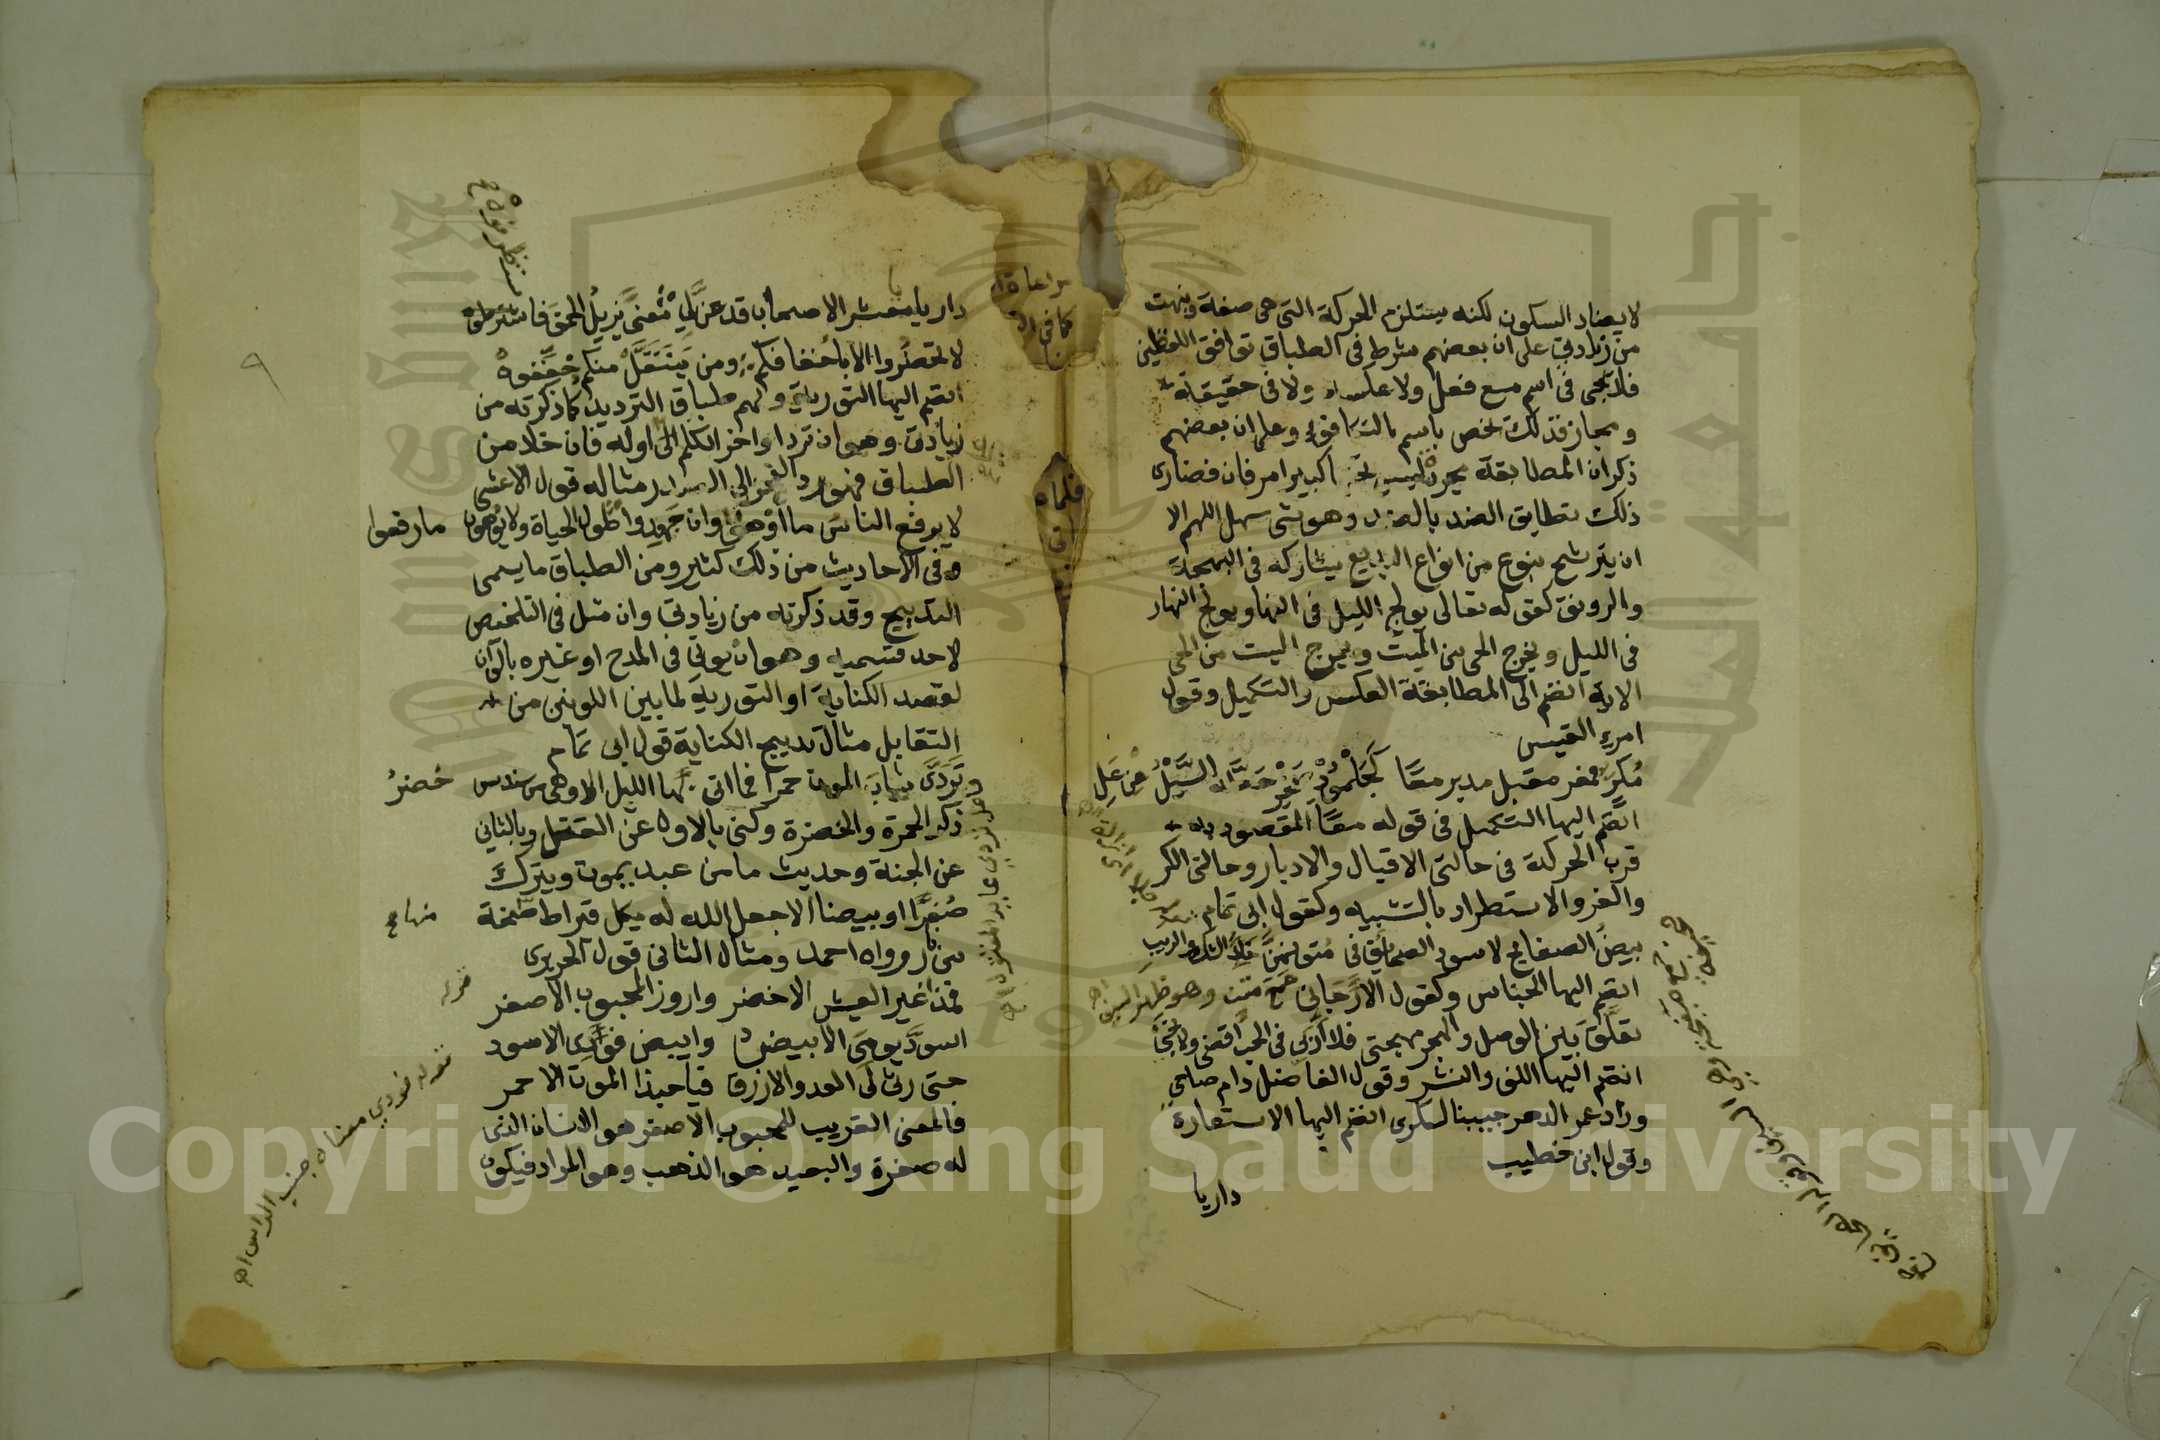 لا يضاد السكون لكنه يستلزم الحركة التي هي صفة ونبهت
من زيادتي على ان بعضهم شرط في الطباق توافق اللفظين
فلا يجي في اسم مع فعل ولا عكسه ولا في حقيقة
ومجاز فذلك يخص باسم التكافو وعلى ان بعضهم
ذكر ان المطابقة مجردة ليس تحتها كبير امر فان قصارى
ذلك تطابق الضد بالضد وهو شي سهل اللهم الا
ان يترشح بنوع من انواع البديع يشاركه في البهجة
والرونق كقوله تعالى يولج الليل في النهار ويولج النهار
في الليل ويخرج الحي من الميت ويخرج الميت من الحي
الاية انضم الى المطابقة العكس والتكميل وقول
امرء القيس
مكر مفر مقبل مدبر معا كجلمود صخر حطه السيل من عل
انضم اليها التكميل في قوله معا المقصود به
قرب الحركة في حالتي الاقبال والادبار وحالتي الكر
والفر والاستطراد بالتشبيه وكقول ابي تمام
بيض الصفايح لا سود الصحائف في متونهن جلاء الشك والريب
انضم اليها الجناس وكقول الارجاني جمع متن وهو ظهر السيف اه
تعلق بين الوصل والهجر مهجتي فلا
انضم اليها اللف والنشر وقول الفاضل دام صاحي
وداد عمر الدهر حبيبنا لسكرى انضم اليها الاستعارة
وقول ابن خطيب
داريا
داريا يا معشر الاصحاب قد عن لي معنى يزيل الحمق فاستظرفوه
لا تحضروا الا باخفافكم ومن تثقل منكم خففوه
انضم اليها التورية ولهم طباق الترديد كما ذكرته من
زيادتي وهو ان ترد اواخر الكلم الى اوله فان خلا من
الطباق فهو رد العجز الى الصدر مثاله قول الاعشى
لا يرفع الناس ما اوهوا وان جهدوا طول الحياة ولا يوهون ما رقعوا
وفي الاحاديث من ذلك كثير ومن الطباق ما يسمى
التدبيج وقد ذكرته من زيادتي وان مثل في التلخيص
لاحد قسميه وهو ان يوتى في المدح او غيره بالوان
لقصد الكناية او التورية لما بين اللونين من
التقابل مثال تدبيج الكناية قول ابي تمام
تردى ثياب الموت حمرا فما اتى لها الليل الا وهي من سندس خضر
ذكر الحمرة والخضرة وكنى بالاول عن القتل وبالثاني
عن الجنة وحديث ما من عبد يموت ويترك
صفرا او بيضا الا جعل الله له بكل قيراط صفيحة
من نار رواه احمد ومثال الثاني قول الحريري
فمذ اغبر العيش الاخضر وازور المحبوب الاصفر
اسود يومي الابيض وابيض فودي الاسود
حتى رثى لي العدو الازرق فيا حبذا الموت الاحمر
فالمعنى القريب للمحبوب الاصفر هو الانسان الذي
له صفرة والبعيد هو الذهب وهو المراد فيكون
منها ح
قوله فودي معناه جنب الراس اه
جامعة الملك سعود
King Saud University
1957
Copyright © King Saud University